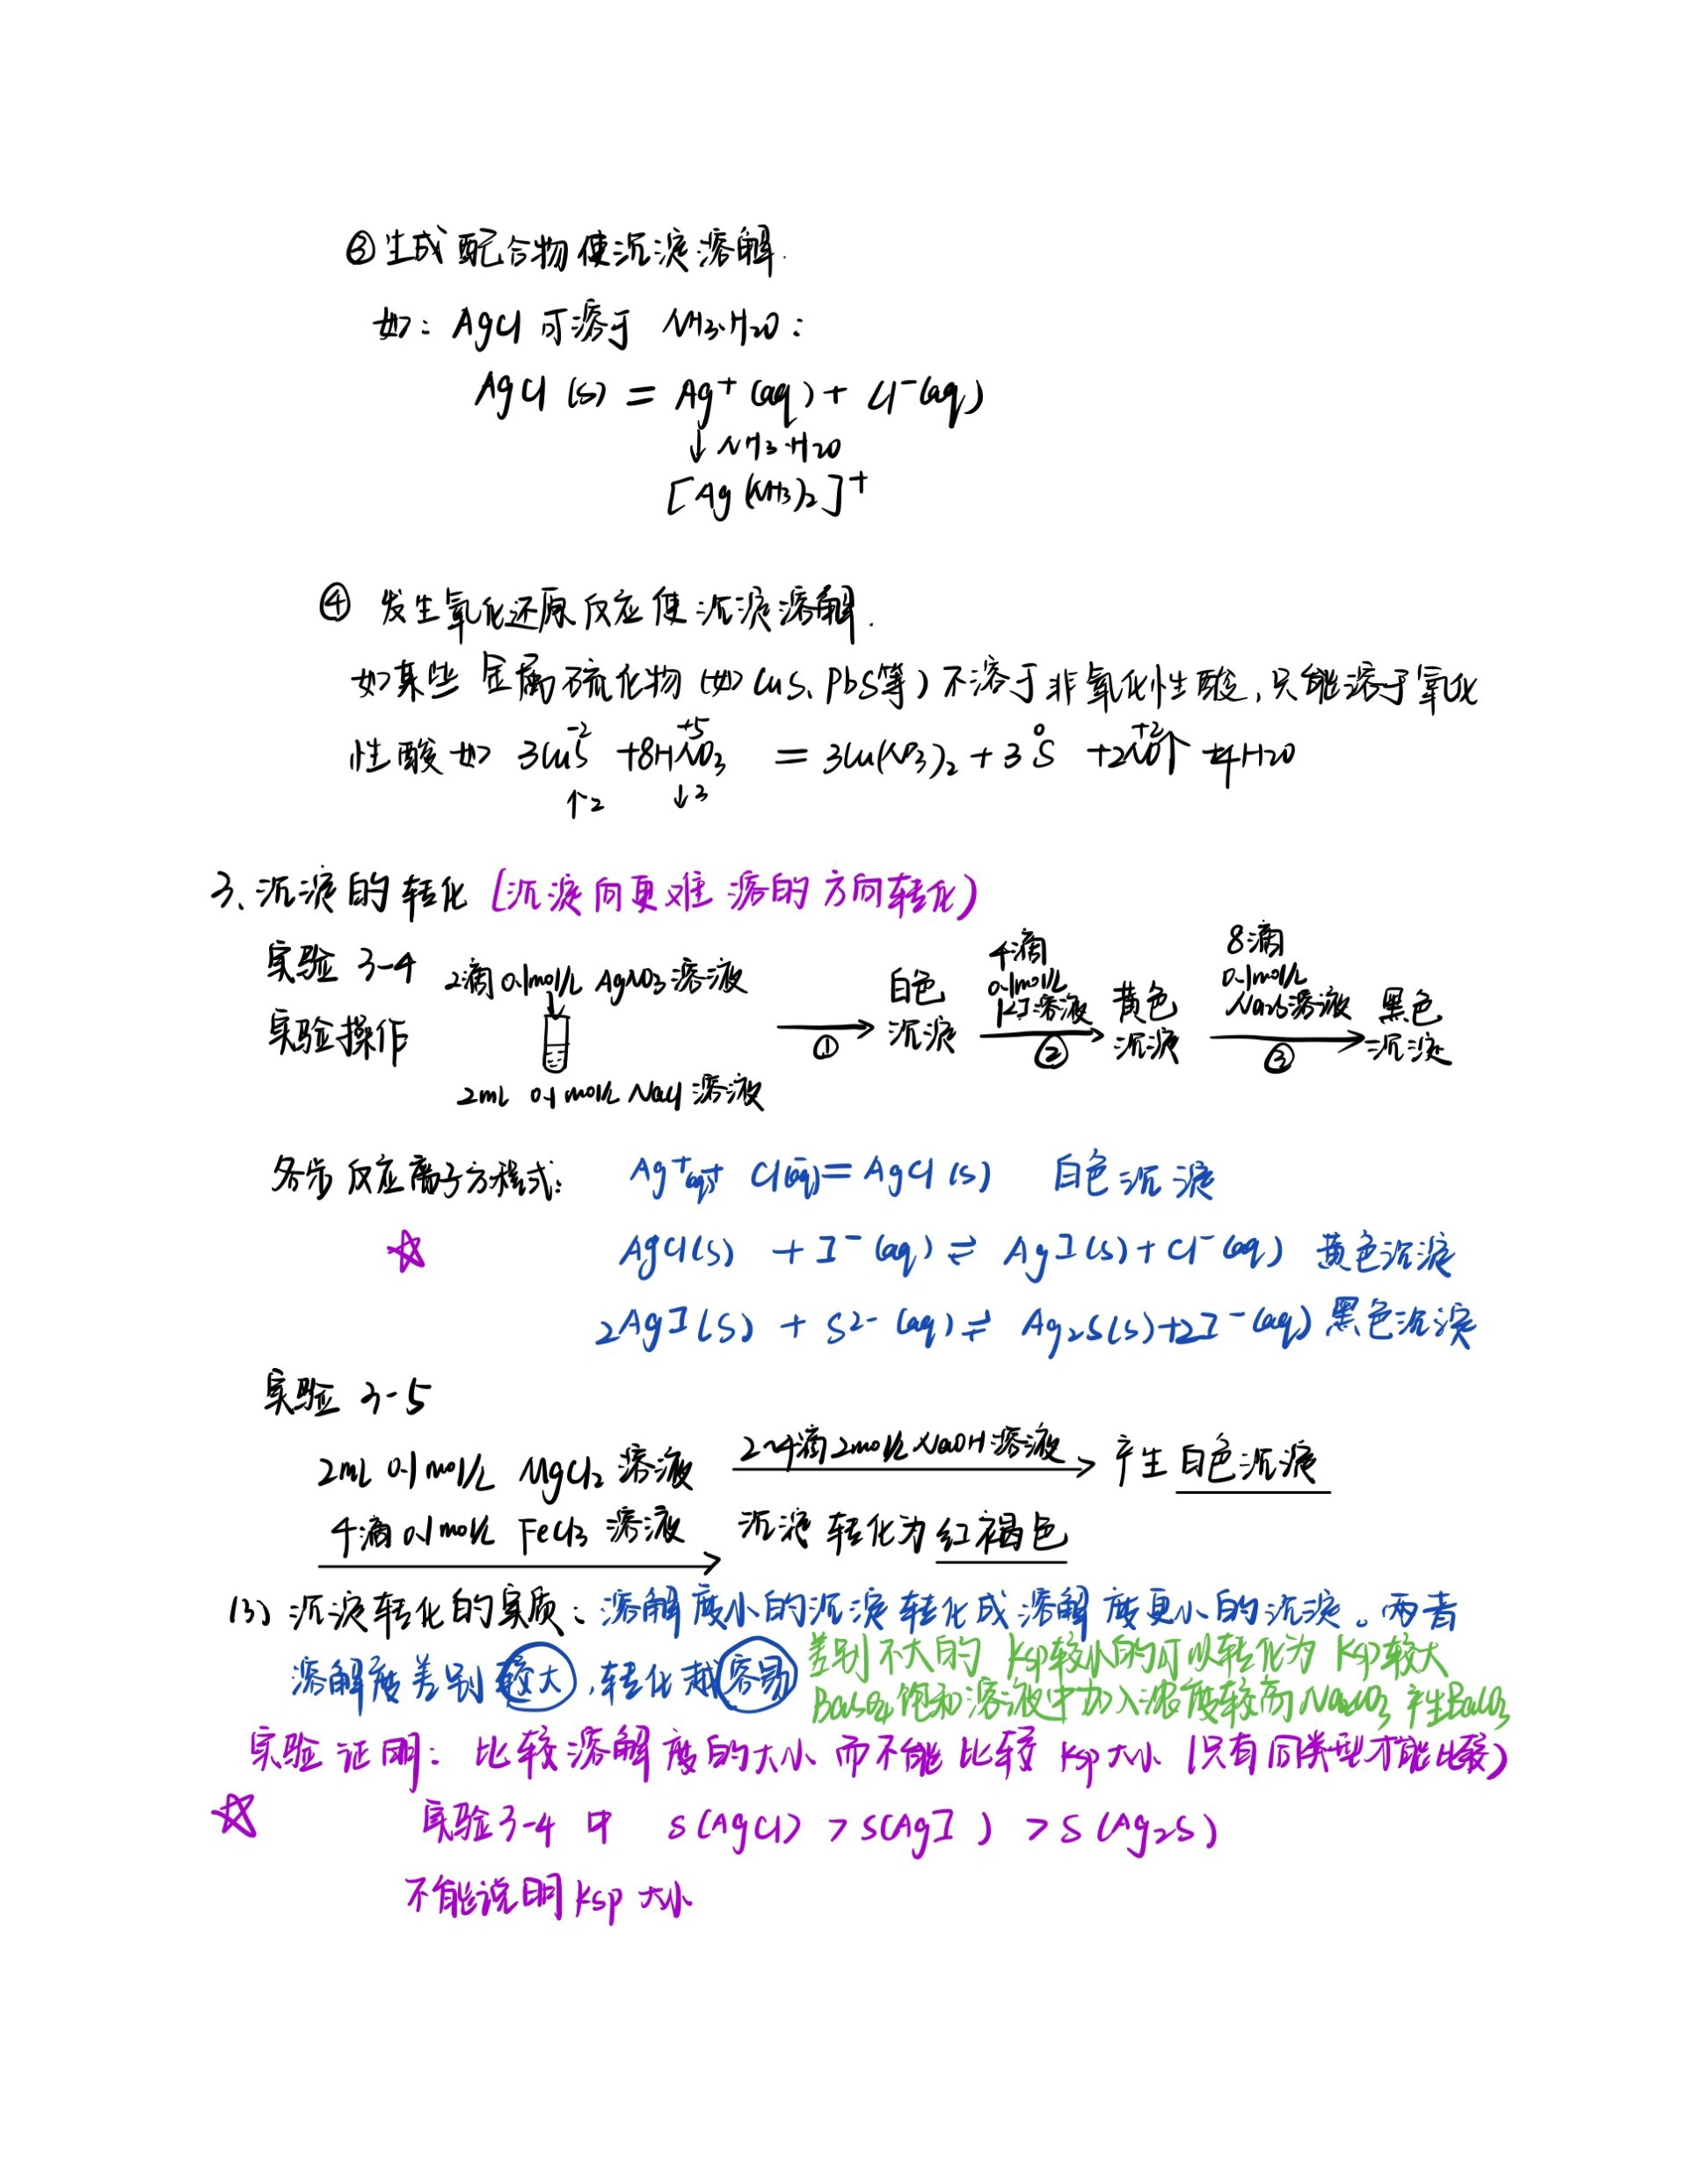 ③生成配合物使沉淀溶解.
如: AgCl 可溶于 NH3·H2O:
AgCl (s) = Ag⁺ (aq) + Cl⁻(aq)
↓ NH3·H2O
[Ag(NH3)2]⁺
④ 发生氧化还原反应使沉淀溶解.
如某些金属硫化物(如CuS、PbS等)不溶于非氧化性酸,只能溶于氧化
-2 +5 0 +2
性酸如 3CuS +8HNO3 = 3Cu(NO3)2 + 3S +2NO↑ +4H2O
↑2 ↓3
3、沉淀的转化 (沉淀向更难溶的方向转化)
实验 3-4
实验操作
2滴 0.1mol/L AgNO3 溶液
2mL 0.1mol/L NaCl 溶液
①
白色
沉淀
4滴
0.1mol/L
KI溶液
②
黄色
沉淀
8滴
0.1mol/L
Na2S溶液
③
黑色
沉淀
各步反应离子方程式: Ag⁺(aq)+ Cl⁻(aq)= AgCl (s) 白色沉淀
AgCl(s) + I⁻(aq) ⇌ AgI(s) + Cl⁻(aq) 黄色沉淀
2AgI(s) + S²⁻(aq) ⇌ Ag2S(s)+2I⁻(aq) 黑色沉淀
实验 3-5
2mL 0.1mol/L MgCl2 溶液 2~4滴2mol/L NaOH溶液 产生白色沉淀
4滴 0.1mol/L FeCl3 溶液 沉淀转化为红褐色
(3) 沉淀转化的实质: 溶解度小的沉淀转化成溶解度更小的沉淀。两者
溶解度差别较大,转化越容易
差别不大的 Ksp较小的可以转化为 Ksp较大
BaSO4饱和溶液中加入浓度较高Na2CO3 产生BaCO3
实验证明: 比较溶解度的大小而不能比较 Ksp大小 (只有同类型才能比较)
实验3-4 中 S(AgCl) > S(AgI) > S(Ag2S)
不能说明Ksp 大小